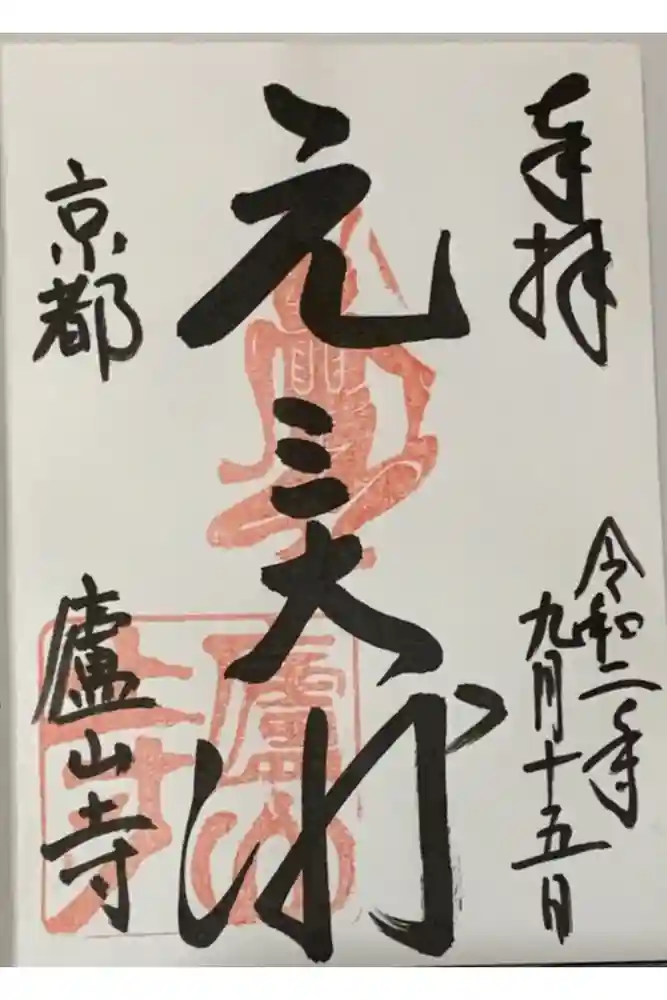 奉拝
令和二年
九月十五日
元三大師
京都
廬山寺